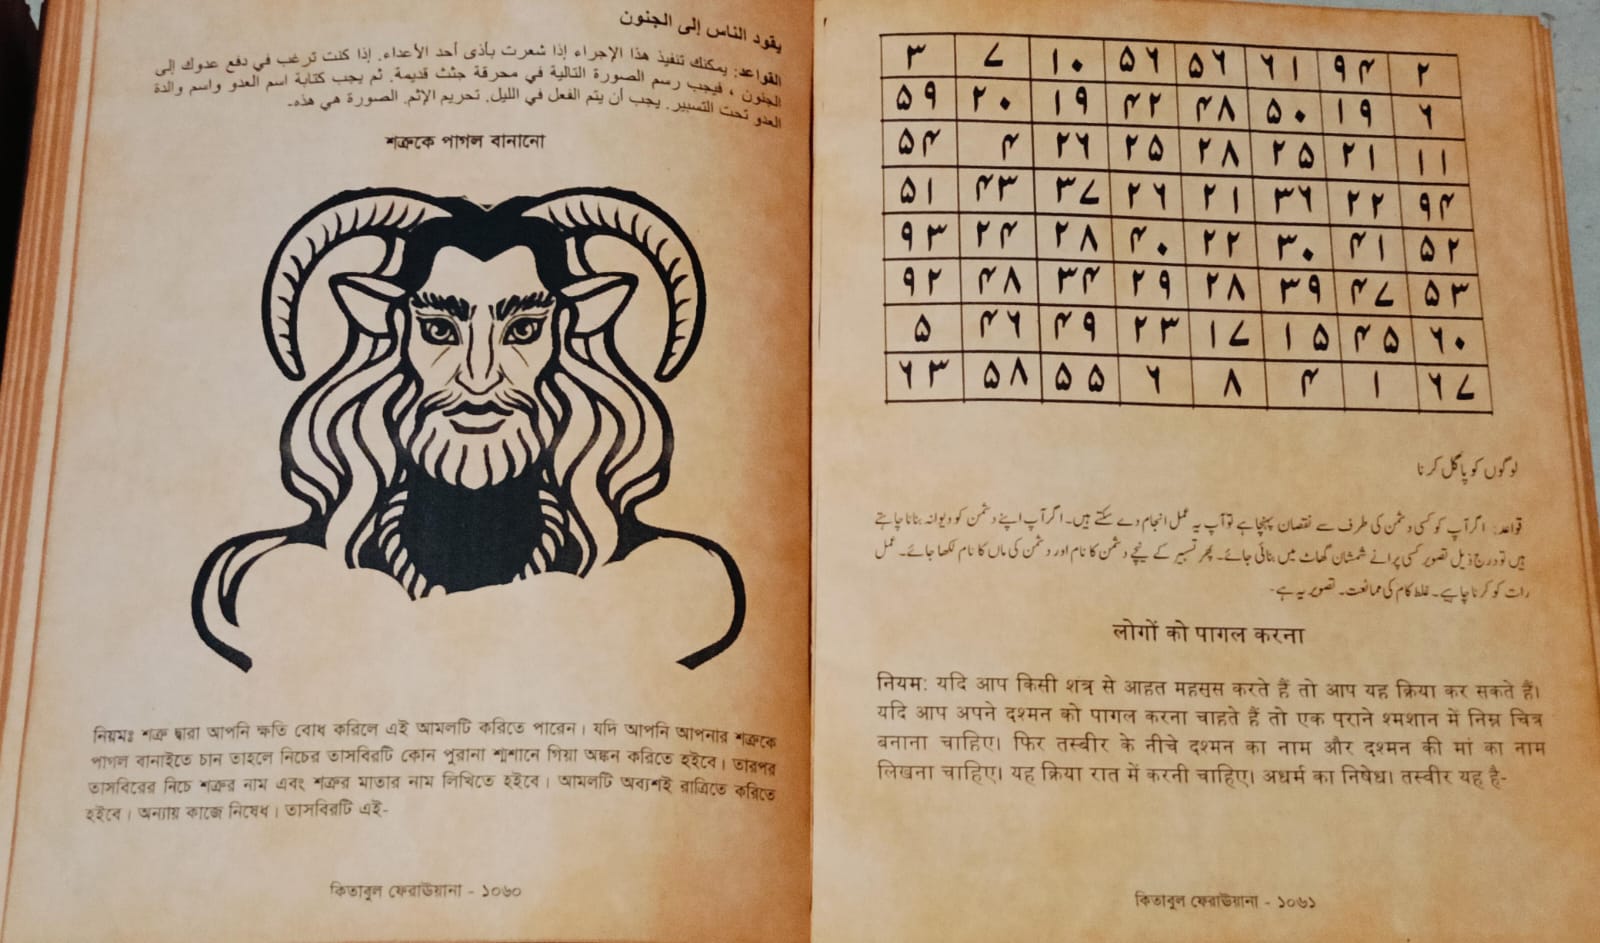 يقود الناس إلى الجنون
القواعد: يمكنك تنفيذ هذا الإجراء إذا شعرت بأذى أحد الأعداء. إذا كنت ترغب في دفع عدوك إلى
الجنون ، فيجب رسم الصورة التالية في محرقة جثث قديمة. ثم يجب كتابة اسم العدو واسم والدة
العدو تحت التسبير. يجب أن يتم الفعل في الليل. تحريم الإثم. الصورة هي هذه-
শত্রুকে পাগল বানানো
নিয়মঃ শত্রু দ্বারা আপনি ক্ষতি বোধ করিলে এই আমলটি করিতে পারেন। যদি আপনি আপনার শত্রুকে
পাগল বানাইতে চান তাহলে নিচের তাসবিরটি কোন পুরানা শ্মশানে গিয়া অঙ্কন করিতে হইবে। তারপর
তাসবিরের নিচে শত্রুর নাম এবং শত্রুর মাতার নাম লিখিতে হইবে। আমলটি অবশ্যই রাত্রিতে করিতে
হইবে। অন্যায় কাজে নিষেধ। তাসবিরটি এই-
কিতাবুল ফেরাউয়ানা - ১০৬০
۳ ۷ ۱۰ ۵۶ ۵۶ ۶۱ ۹۴ ۲
۵۹ ۲۰ ۱۹ ۴۲ ۴۸ ۵۰ ۱۹ ۶
۵۴ ۴ ۲۶ ۲۵ ۲۸ ۲۵ ۲۱ ۱۱
۵۱ ۴۳ ۳۷ ۲۶ ۲۱ ۳۶ ۲۲ ۹۴
۹۳ ۲۴ ۲۸ ۴۰ ۲۲ ۳۰ ۴۱ ۵۲
۹۲ ۴۸ ۳۴ ۲۹ ۲۸ ۳۹ ۴۷ ۵۳
۵ ۴۶ ۴۹ ۲۳ ۱۷ ۱۵ ۴۵ ۶۰
۶۳ ۵۸ ۵۵ ۶ ۸ ۴ ۱ ۶۷
لوگوں کو پاگل کرنا
قواعد: اگر آپ کو کسی دشمن کی طرف سے نقصان پہنچا ہے تو آپ یہ عمل انجام دے سکتے ہیں۔ اگر آپ اپنے دشمن کو دیوانہ بنانا چاہتے
ہیں تو درج ذیل تصویر کسی پرانے شمشان گھاٹ میں بنائی جائے۔ پھر تسبیر کے نیچے دشمن کا نام اور دشمن کی ماں کا نام لکھا جائے۔ عمل
رات کو کرنا چاہیے۔ غلط کام کی ممانعت۔ تصویر یہ ہے-
लोगों को पागल करना
नियम: यदि आप किसी शत्रु से आहत महसूस करते हैं तो आप यह क्रिया कर सकते हैं।
यदि आप अपने दश्मन को पागल करना चाहते हैं तो एक पुराने श्मशान में निम्न चित्र
बनाना चाहिए। फिर तस्वीर के नीचे दश्मन का नाम और दश्मन की मां का नाम
लिखना चाहिए। यह क्रिया रात में करनी चाहिए। अधर्म का निषेध। तस्वीर यह है-
কিতাবুল ফেরাউয়ানা - ১০৬১